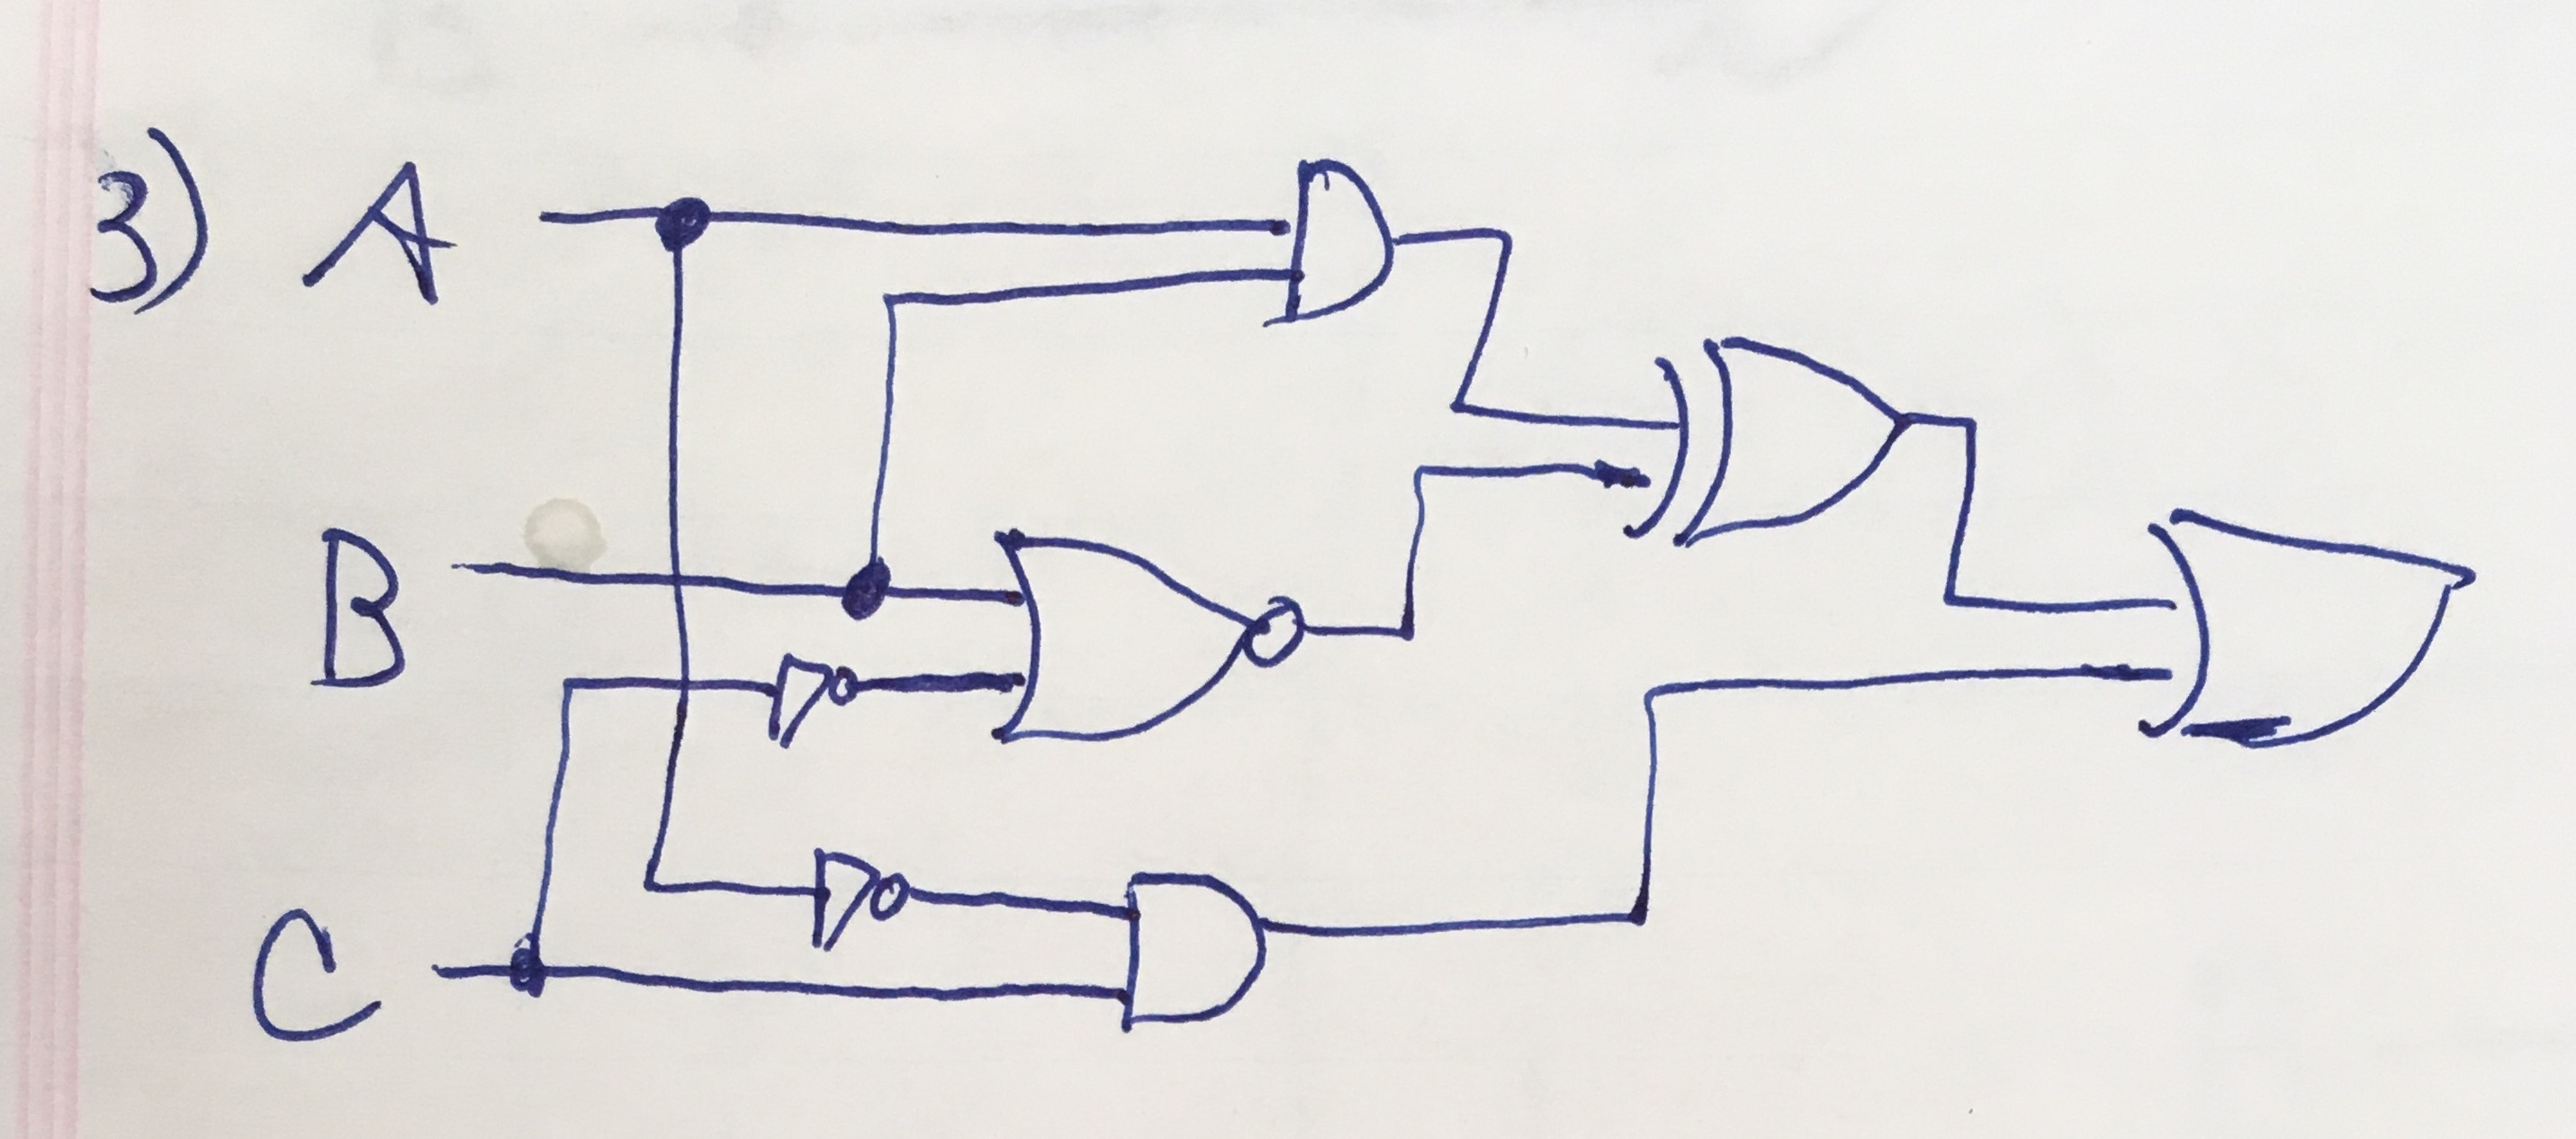 3) A
B
C